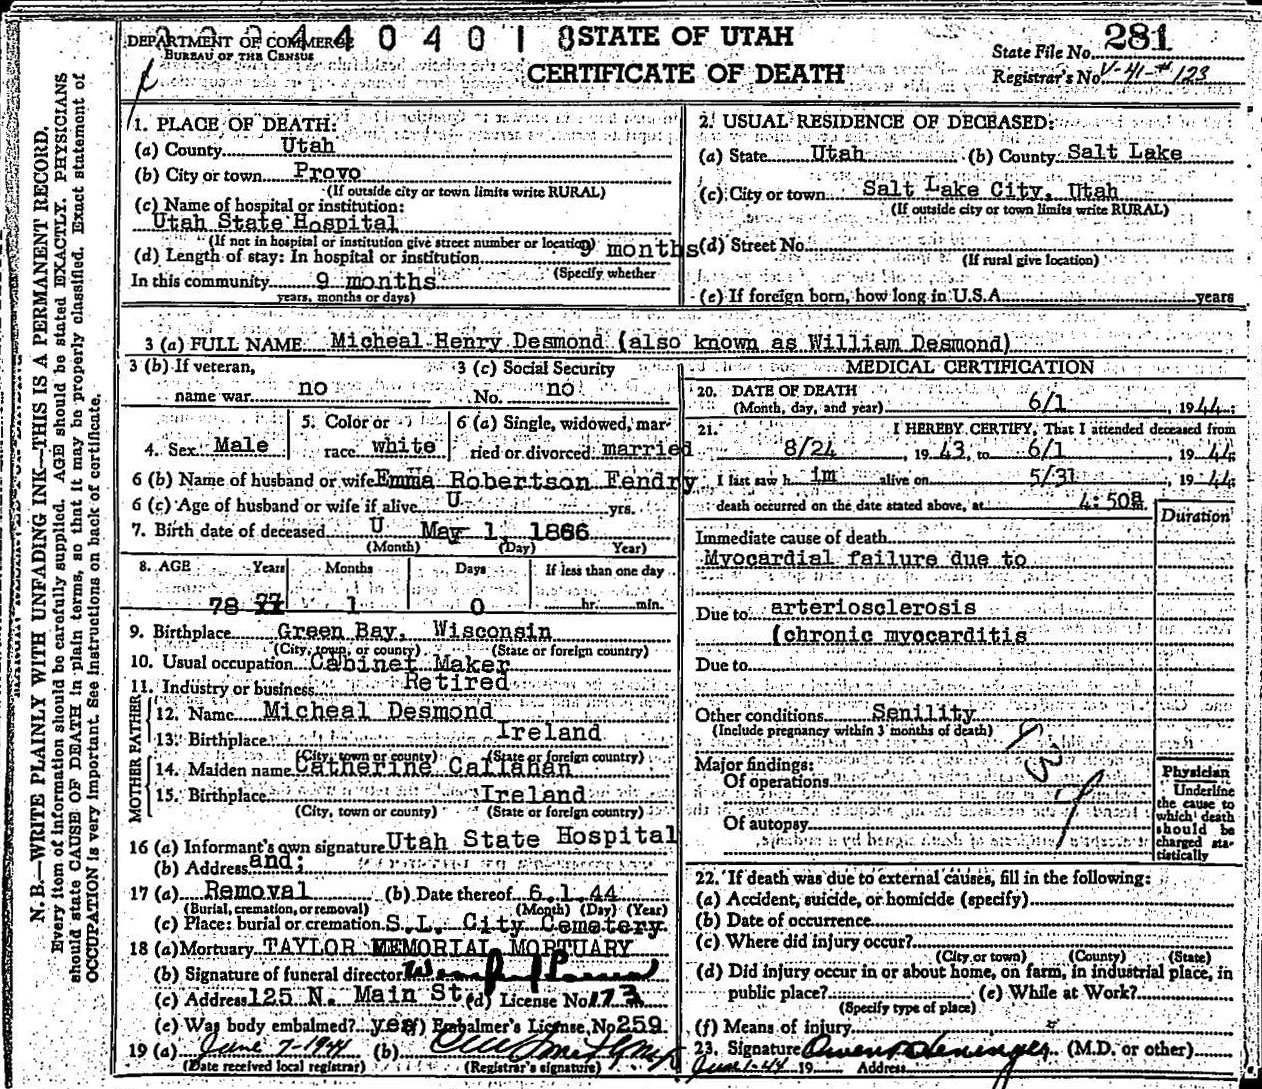 N. B.—WRITE PLAINLY WITH UNFADING INK—THIS IS A PERMANENT RECORD.
Every item of information should be carefully supplied. AGE should be stated EXACTLY. PHYSICIANS
should state CAUSE OF DEATH in plain terms, so that it may be properly classified. Exact statement of
OCCUPATION is very important. See instructions on back of certificate.
DEPARTMENT OF COMMERCE
BUREAU OF THE CENSUS
STATE OF UTAH
CERTIFICATE OF DEATH
State File No. 281
Registrar's No. V-41-#123
1. PLACE OF DEATH:
(a) County Utah
(b) City or town Provo
(If outside city or town limits write RURAL)
(c) Name of hospital or institution:
Utah State Hospital
(If not in hospital or institution give street number or location)
(d) Length of stay: In hospital or institution 9 months
(Specify whether
In this community 9 months
years, months or days)
2. USUAL RESIDENCE OF DECEASED:
(a) State Utah (b) County Salt Lake
(c) City or town Salt Lake City, Utah
(If outside city or town limits write RURAL)
(d) Street No.
(If rural give location)
(e) If foreign born, how long in U.S.A. years
3 (a) FULL NAME Micheal Henry Desmond (also known as William Desmond)
3 (b) If veteran,
name war no
3 (c) Social Security
No. no
4. Sex Male
5. Color or
race white
6 (a) Single, widowed, mar-
ried or divorced married
6 (b) Name of husband or wife Emma Robertson Fendry
6 (c) Age of husband or wife if alive U yrs.
7. Birth date of deceased U May 1, 1866
(Month) (Day) Year)
8. AGE Years Months Days If less than one day
78 77 1 0 hr. min.
9. Birthplace Green Bay, Wisconsin
(City, town, or county) (State or foreign country)
10. Usual occupation Cabinet Maker
11. Industry or business Retired
FATHER
12. Name Micheal Desmond
13. Birthplace Ireland
(City, town or county) (State or foreign country)
MOTHER
14. Maiden name Catherine Callahan
15. Birthplace Ireland
(City, town or county) (State or foreign country)
16 (a) Informant's own signature Utah State Hospital
(b) Address and;
17 (a) Removal (b) Date thereof 6.1.44
(Burial, cremation, or removal) (Month) (Day) (Year)
(c) Place: burial or cremation S.L. City Cemetery
18 (a) Mortuary TAYLOR MEMORIAL MORTUARY
(b) Signature of funeral director
(c) Address 125 N. Main St. (d) License No. 173
(e) Was body embalmed? yes (f) Embalmer's License No 259
19 (a) June 7-1944 (b)
(Date received local registrar) (Registrar's signature)
MEDICAL CERTIFICATION
20. DATE OF DEATH
(Month, day, and year) 6/1, 1944
21. I HEREBY CERTIFY, That I attended deceased from
8/24, 1943, to 6/1, 1944
I last saw h im alive on 5/31, 1944
death occurred on the date stated above, at 4:50a m.
Duration
Immediate cause of death
Myocardial failure due to
Due to arteriosclerosis
(chronic myocarditis
Due to
Other conditions Senility
(Include pregnancy within 3 months of death)
Major findings:
Of operations
Of autopsy
Physician
Underline
the cause to
which death
should be
charged sta-
tistically
22. If death was due to external causes, fill in the following:
(a) Accident, suicide, or homicide (specify)
(b) Date of occurrence
(c) Where did injury occur?
(City or town) (County) (State)
(d) Did injury occur in or about home, on farm, in industrial place, in
public place? (e) While at Work?
(Specify type of place)
(f) Means of injury
23. Signature (M.D. or other)
June 1-44 19 Address